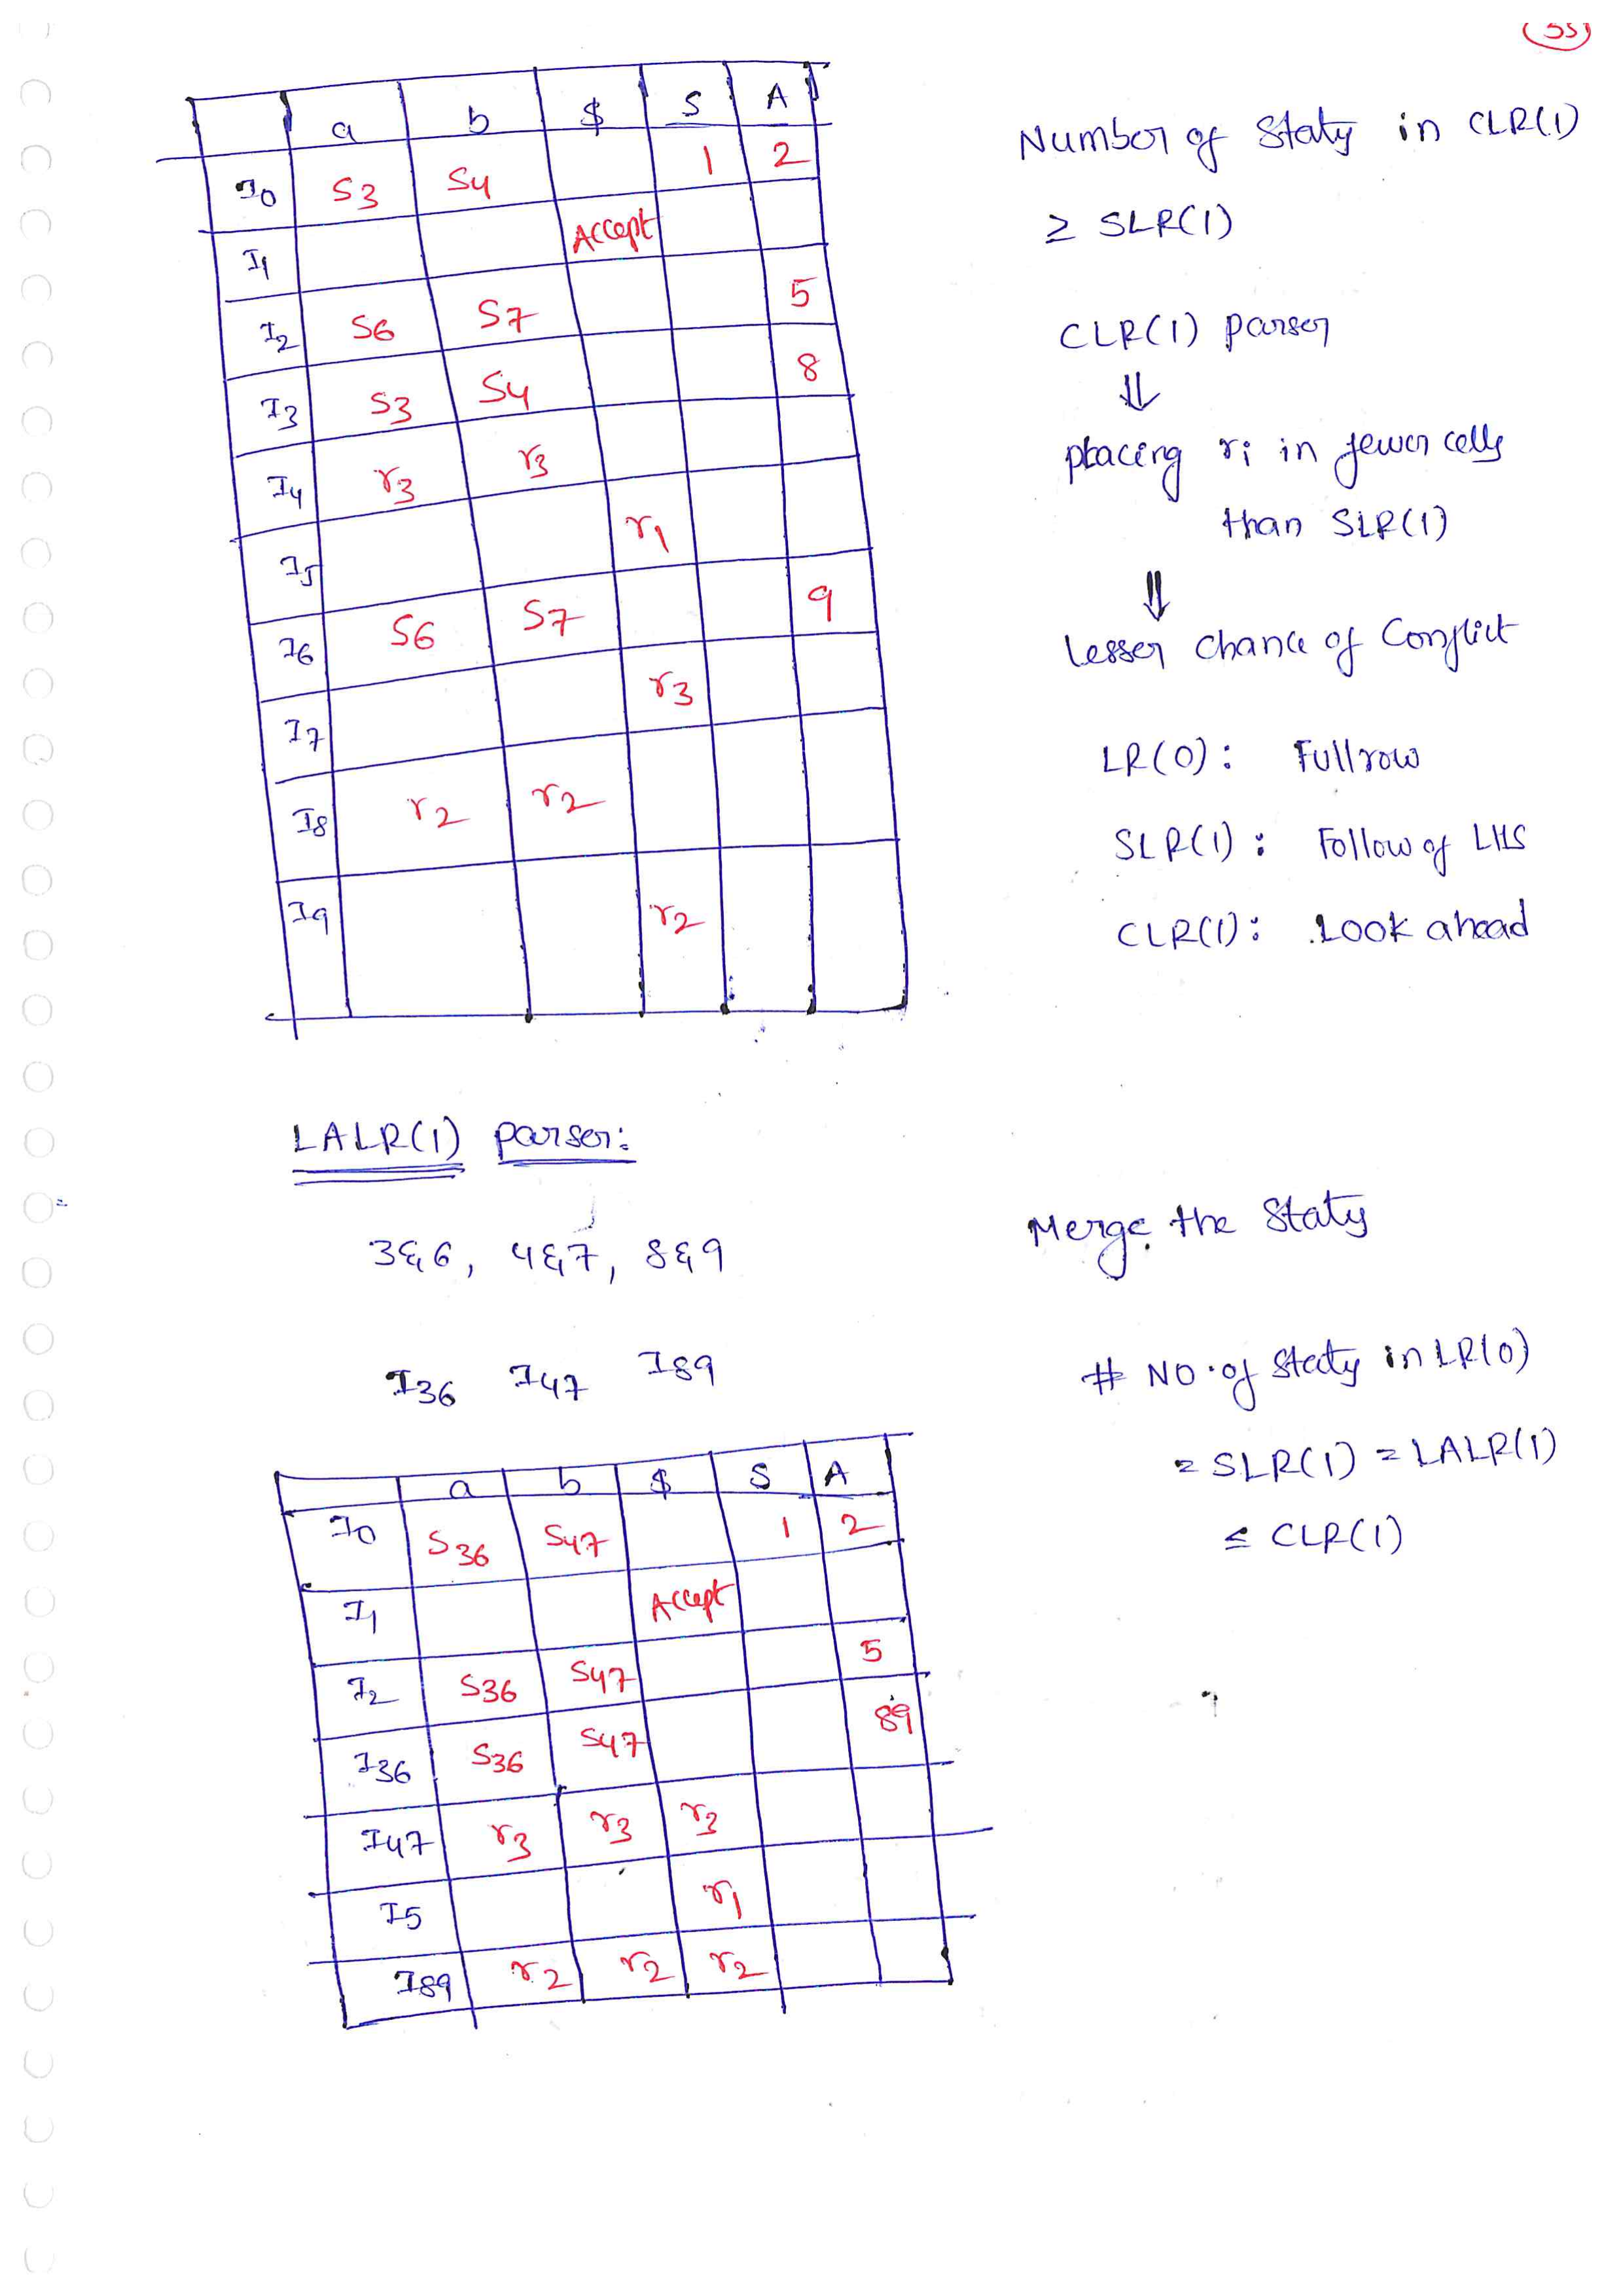 55
a b $ S A
I0 S3 S4 1 2
I1 Accept
I2 S6 S7 5
I3 S3 S4 8
I4 r3 r3
I5 r1
I6 S6 S7 9
I7 r3
I8 r2 r2
I9 r2
Number of States in CLR(1)
≥ SLR(1)
CLR(1) parser
⇓
placing ri in fewer cells
than SLR(1)
⇓
Lesser chance of Conflict
LR(0): Full row
SLR(1): Follow of LHS
CLR(1): Look ahead
LALR(1) parser:
3&6, 4&7, 8&9
Merge the States
I36 I47 I89
# NO. of States in LR(0)
= SLR(1) = LALR(1)
≤ CLR(1)
a b $ S A
I0 S36 S47 1 2
I1 Accept
I2 S36 S47 5
I36 S36 S47 89
I47 r3 r3 r3
I5 r1
I89 r2 r2 r2